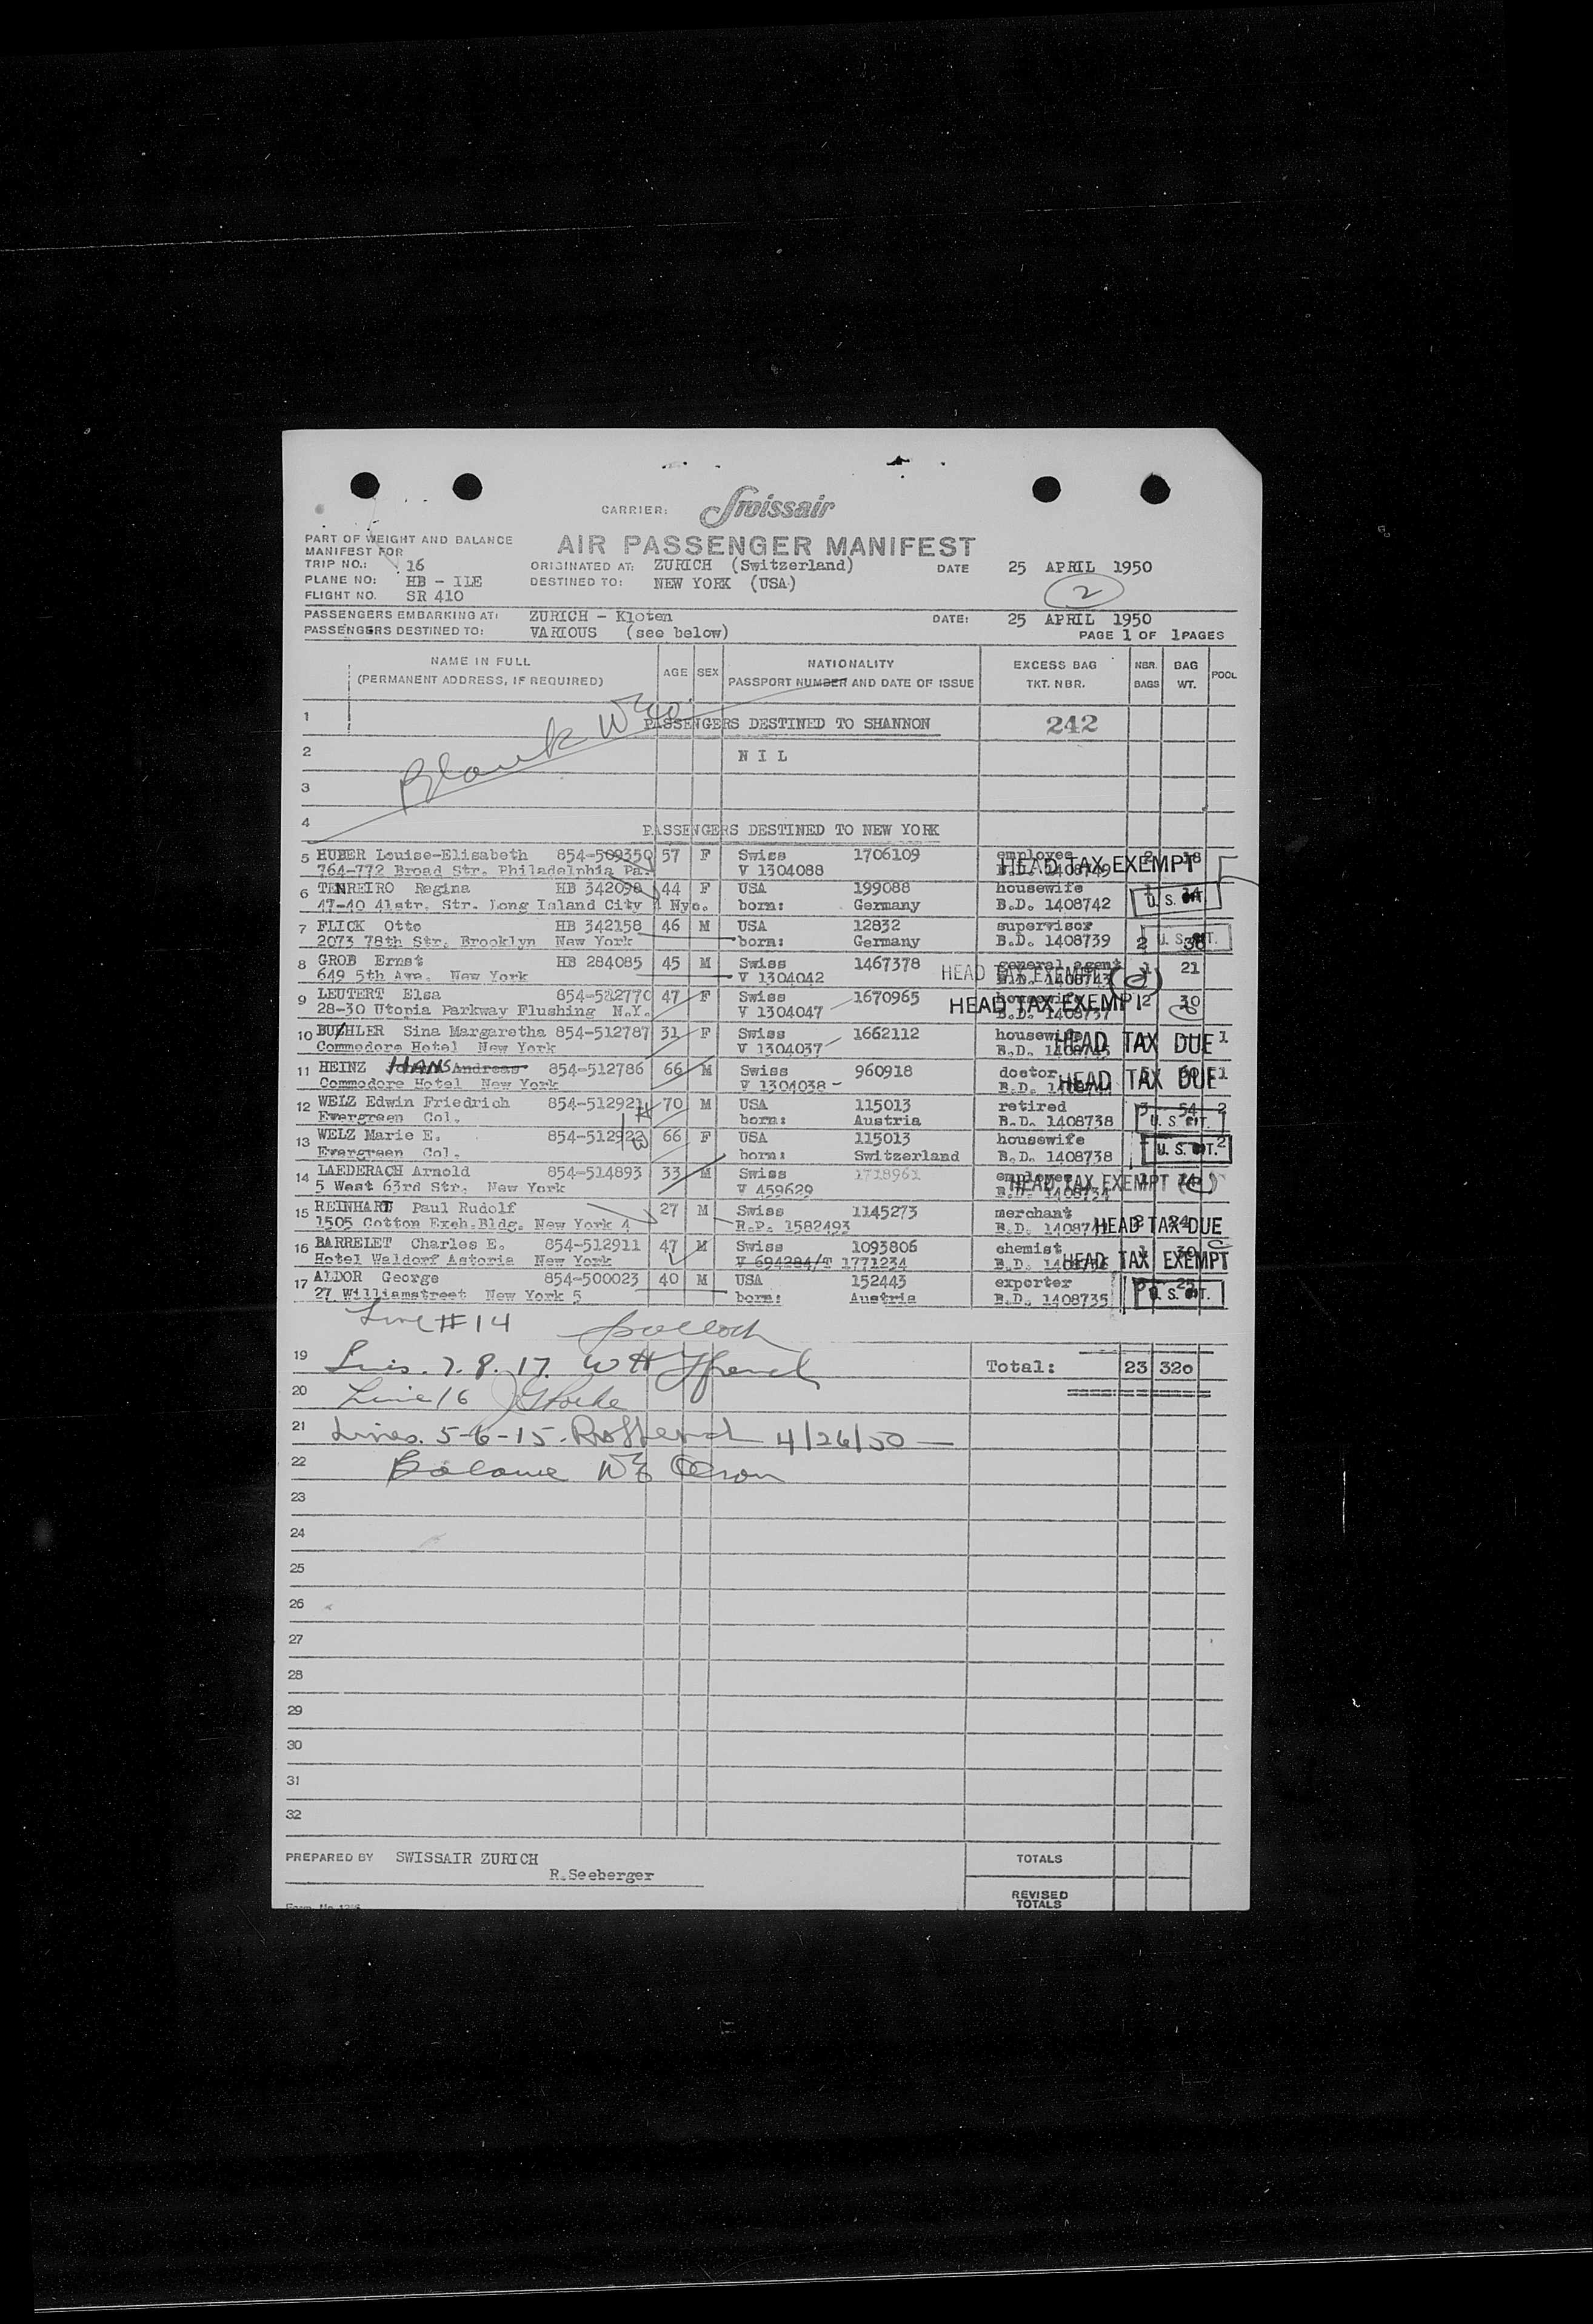 CARRIER: Swissair
PART OF WEIGHT AND BALANCE
MANIFEST FOR
AIR PASSENGER MANIFEST
TRIP NO.: 16 ORIGINATED AT: ZURICH (Switzerland) DATE 25 APRIL 1950
PLANE NO: HB - ILE DESTINED TO: NEW YORK (USA)
2
FLIGHT NO. SR 410
PASSENGERS EMBARKING AT: ZURICH - Kloten DATE: 25 APRIL 1950
PASSENGERS DESTINED TO: VARIOUS (see below) PAGE 1 OF 1 PAGES
NAME IN FULL AGE SEX NATIONALITY EXCESS BAG NBR. BAG POOL
(PERMANENT ADDRESS, IF REQUIRED) PASSPORT NUMBER AND DATE OF ISSUE TKT. NBR. BAGS WT.
1 PASSENGERS DESTINED TO SHANNON 242
Blank
2 N I L
3
4 PASSENGERS DESTINED TO NEW YORK
5 HUBER Louise-Elisabeth 854-509350 57 F Swiss 1706109 employee 2 18
764-772 Broad Str. Philadelphia Pa. V 1304088 B.D. 1408749 HEAD TAX EXEMPT
6 TENREIRO Regina HB 342098 44 F USA 199088 housewife 1 14
47-40 41str. Str. Long Island City 4 Nyc. born: Germany B.D. 1408742 U. S. CIT.
7 FLICK Otto HB 342158 46 M USA 12832 supervisor
2073 78th Str. Brooklyn New York born: Germany B.D. 1408739 2 38 U. S. CIT.
8 GROB Ernst HB 284085 45 M Swiss 1467378 general agent 1 21
649 5th Ave. New York V 1304042 B.D. 1408743 HEAD TAX EXEMPT
9 LEUTERT Elsa 854-512770 47 F Swiss 1670965 housewife 2 30
28-30 Utopia Parkway Flushing N.Y. V 1304047 B.D. 1408737 HEAD TAX EXEMPT
10 BUEHLER Sina Margaretha 854-512787 31 F Swiss 1662112 housewife 1
Commodore Hotel New York V 1304037 B.D. HEAD TAX DUE
11 HEINZ HANS Andreas 854-512786 66 M Swiss 960918 doctor 1
Commodore Hotel New York V 1304038 B.D. HEAD TAX DUE
12 WELZ Edwin Friedrich 854-512921 70 M USA 115013 retired 3 54 2
Evergreen Col. born: Austria B.D. 1408738 U. S. CIT.
13 WELZ Marie E. 854-512922 66 F USA 115013 housewife 2
Evergreen Col. born: Switzerland B.D. 1408738 U. S. CIT.
14 LAEDERACH Arnold 854-514893 33 M Swiss 1718961 employee
5 West 63rd Str. New York V 459629 B.D. 1408734 HEAD TAX EXEMPT
15 REINHART Paul Rudolf 27 M Swiss 1145273 merchant
1505 Cotton Exch.Bldg. New York 4 R.P. 1582493 B.D. HEAD TAX DUE
16 BARRELET Charles E. 854-512911 47 M Swiss 1093806 chemist
Hotel Waldorf Astoria New York V 694284/T 1771234 B.D. HEAD TAX EXEMPT
17 ALDOR George 854-500023 40 M USA 152443 exporter 25
27 Williamstreet New York 5 born: Austria B.D. 1408735 U. S. CIT.
Line #14
19 Lines. 7. 8. 17. Total: 23 320
20 Line 16
21 Lines. 5-6-15. 4/26/50
22 Balance
23
24
25
26
27
28
29
30
31
32
PREPARED BY SWISSAIR ZURICH TOTALS
R.Seeberger
REVISED
TOTALS